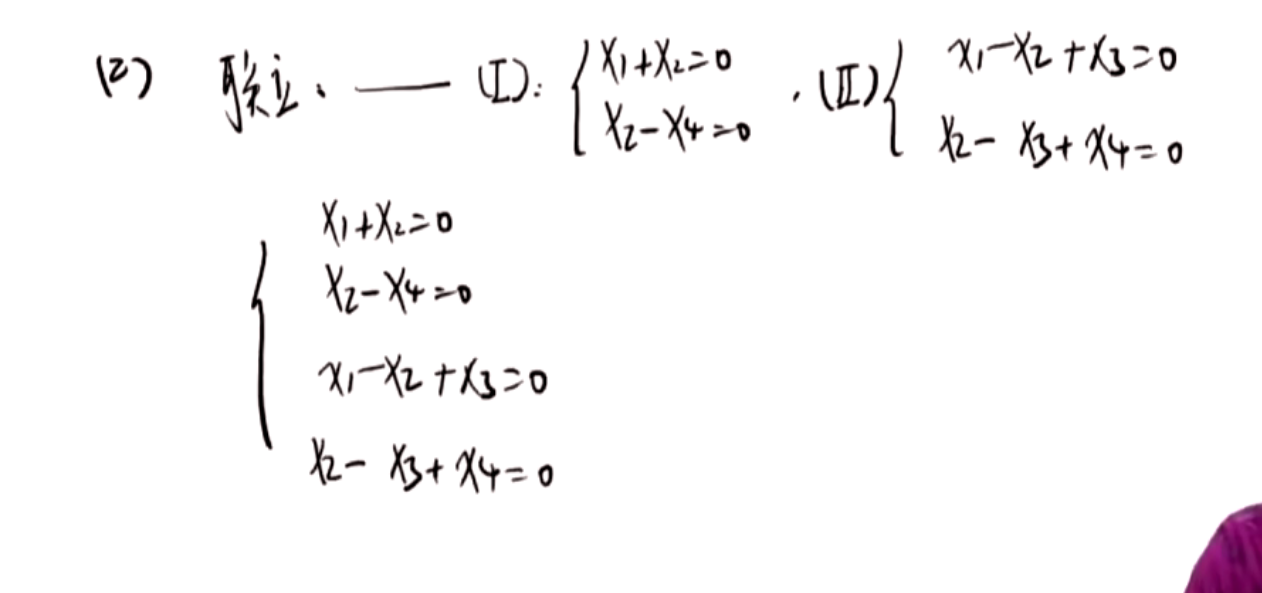 (2) 联立. —— (I): { x₁+x₂=0 , (II) { x₁-x₂+x₃=0
x₂-x₄=0 x₂-x₃+x₄=0
{ x₁+x₂=0
x₂-x₄=0
x₁-x₂+x₃=0
x₂-x₃+x₄=0